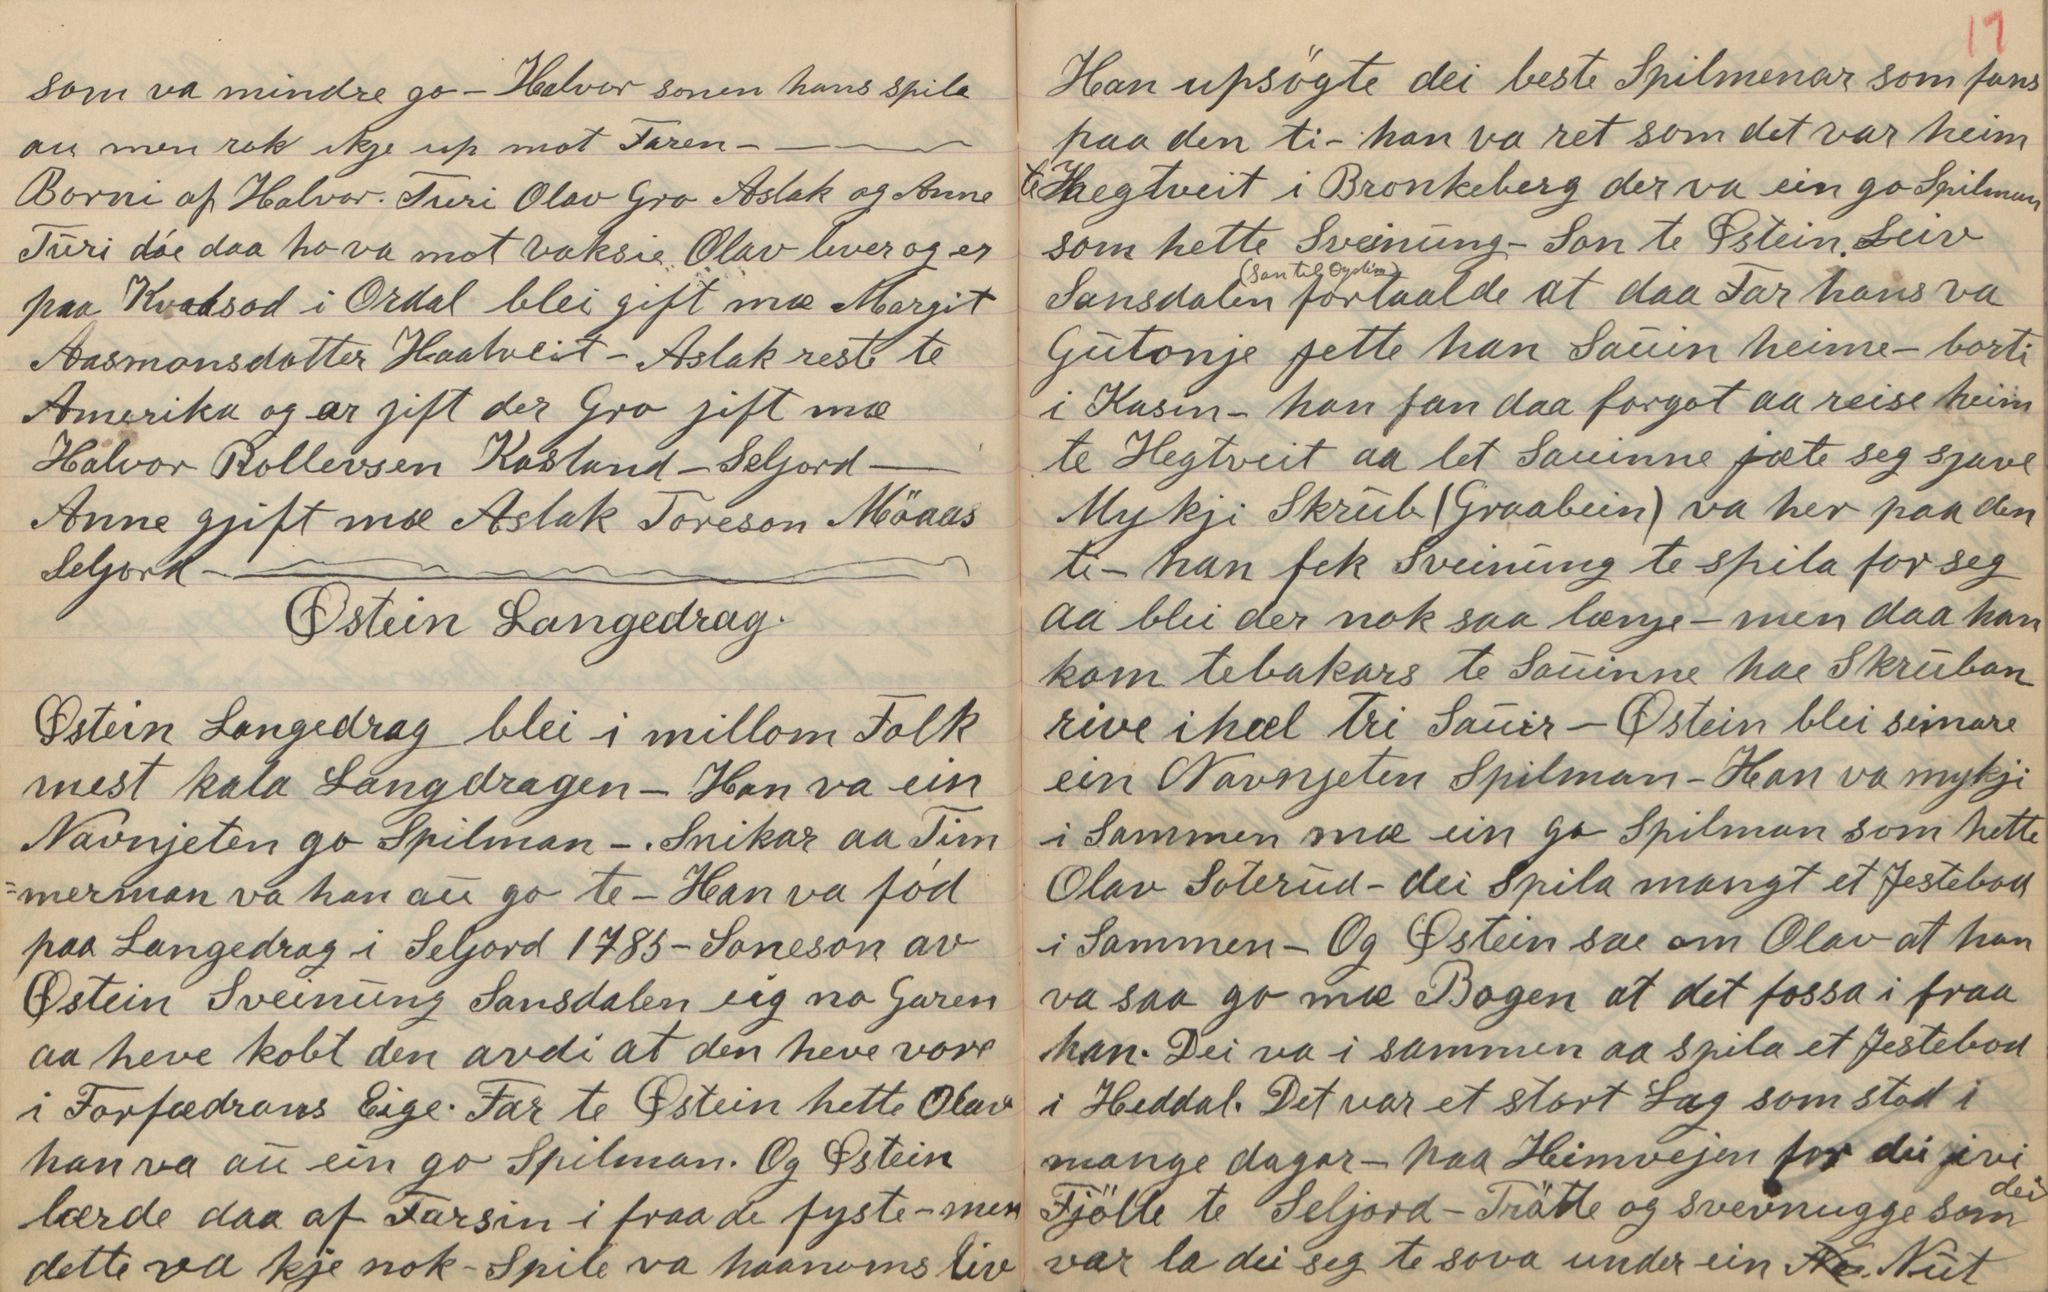 som va mindre go – Halvor sonen hans spila
au men rak ikje up mot Faren –
Borni af Halvor. Turi Olav Gro Aslak og Anne
Turi döe daa ho va mot vaksie Olav lever og er
paa Kvaasod i Ordal blei gift mæ Margit
Aasmonsdotter Haatveit – Aslak reste te
Amerika og er jift der Gro jift mæ
Halvor Rollevsen Kasland – Seljord –
Anne gjift mæ Aslak Toreson Möaas
Seljord –
Østein Langedrag.
Østein Langedrag blei i millom Folk
mest kala Langdragen – Han va ein
Navnjeten go Spilman –. Snikar aa Tim
=merman va han au go te – Han va fód
paa Langedrag i Seljord 1785 – Soneson av
Østein Sveinung Sansdalen eig no Garen
aa heve kobt den avdi at den heve vore
i Forfædrans Eige. Far te Østein hette Olav
han va au ein go Spilman. Og Østein
lærde daa af Farsin i fraa de fyste – men
dette va kje nok – Spile va haanoms liv
17
Han upsögte dei beste Spilmenar som fans
paa den ti – han va ret som det var heim
te Hegtveit i Bronkeberg der va ein go Spilman
som hette Sveinung – Son te Østein. Leiv
(Son til Øystein)
Sansdalen fortaalde at daa Far hans va
Gutonje jette han Sauin heime – borti
i Kasin – han fan daa forgot aa reise heim
te Hegtveit aa let Sauinne jæte seg sjave
Mykji Skrub (Graabein) va her paa den
ti – han fek Sveinung te spila for seg
aa blei der nok saa længe – men daa han
kom tebakars te Sauinne hae Skruban
rive ihæl tri Sauir – Østein blei seinare
ein Navnjeten Spilman – Han va mykji
i Sammen mæ ein go Spilman som hette
Olav Soterud – dei spila mangt et Jestebod
i Sammen – Og Østein sae om Olav at han
va saa go mæ Bogen at det fossa i fraa
han. Dei va i sammen aa spila et Jestebod
i Heddal. Det var et stort Lag som stod i
mange dagar – paa Heimvejen for dei jivi
Fjölle te Seljord – Trötte og svevnugge som dei
var la dei seg te sova under ein Nut